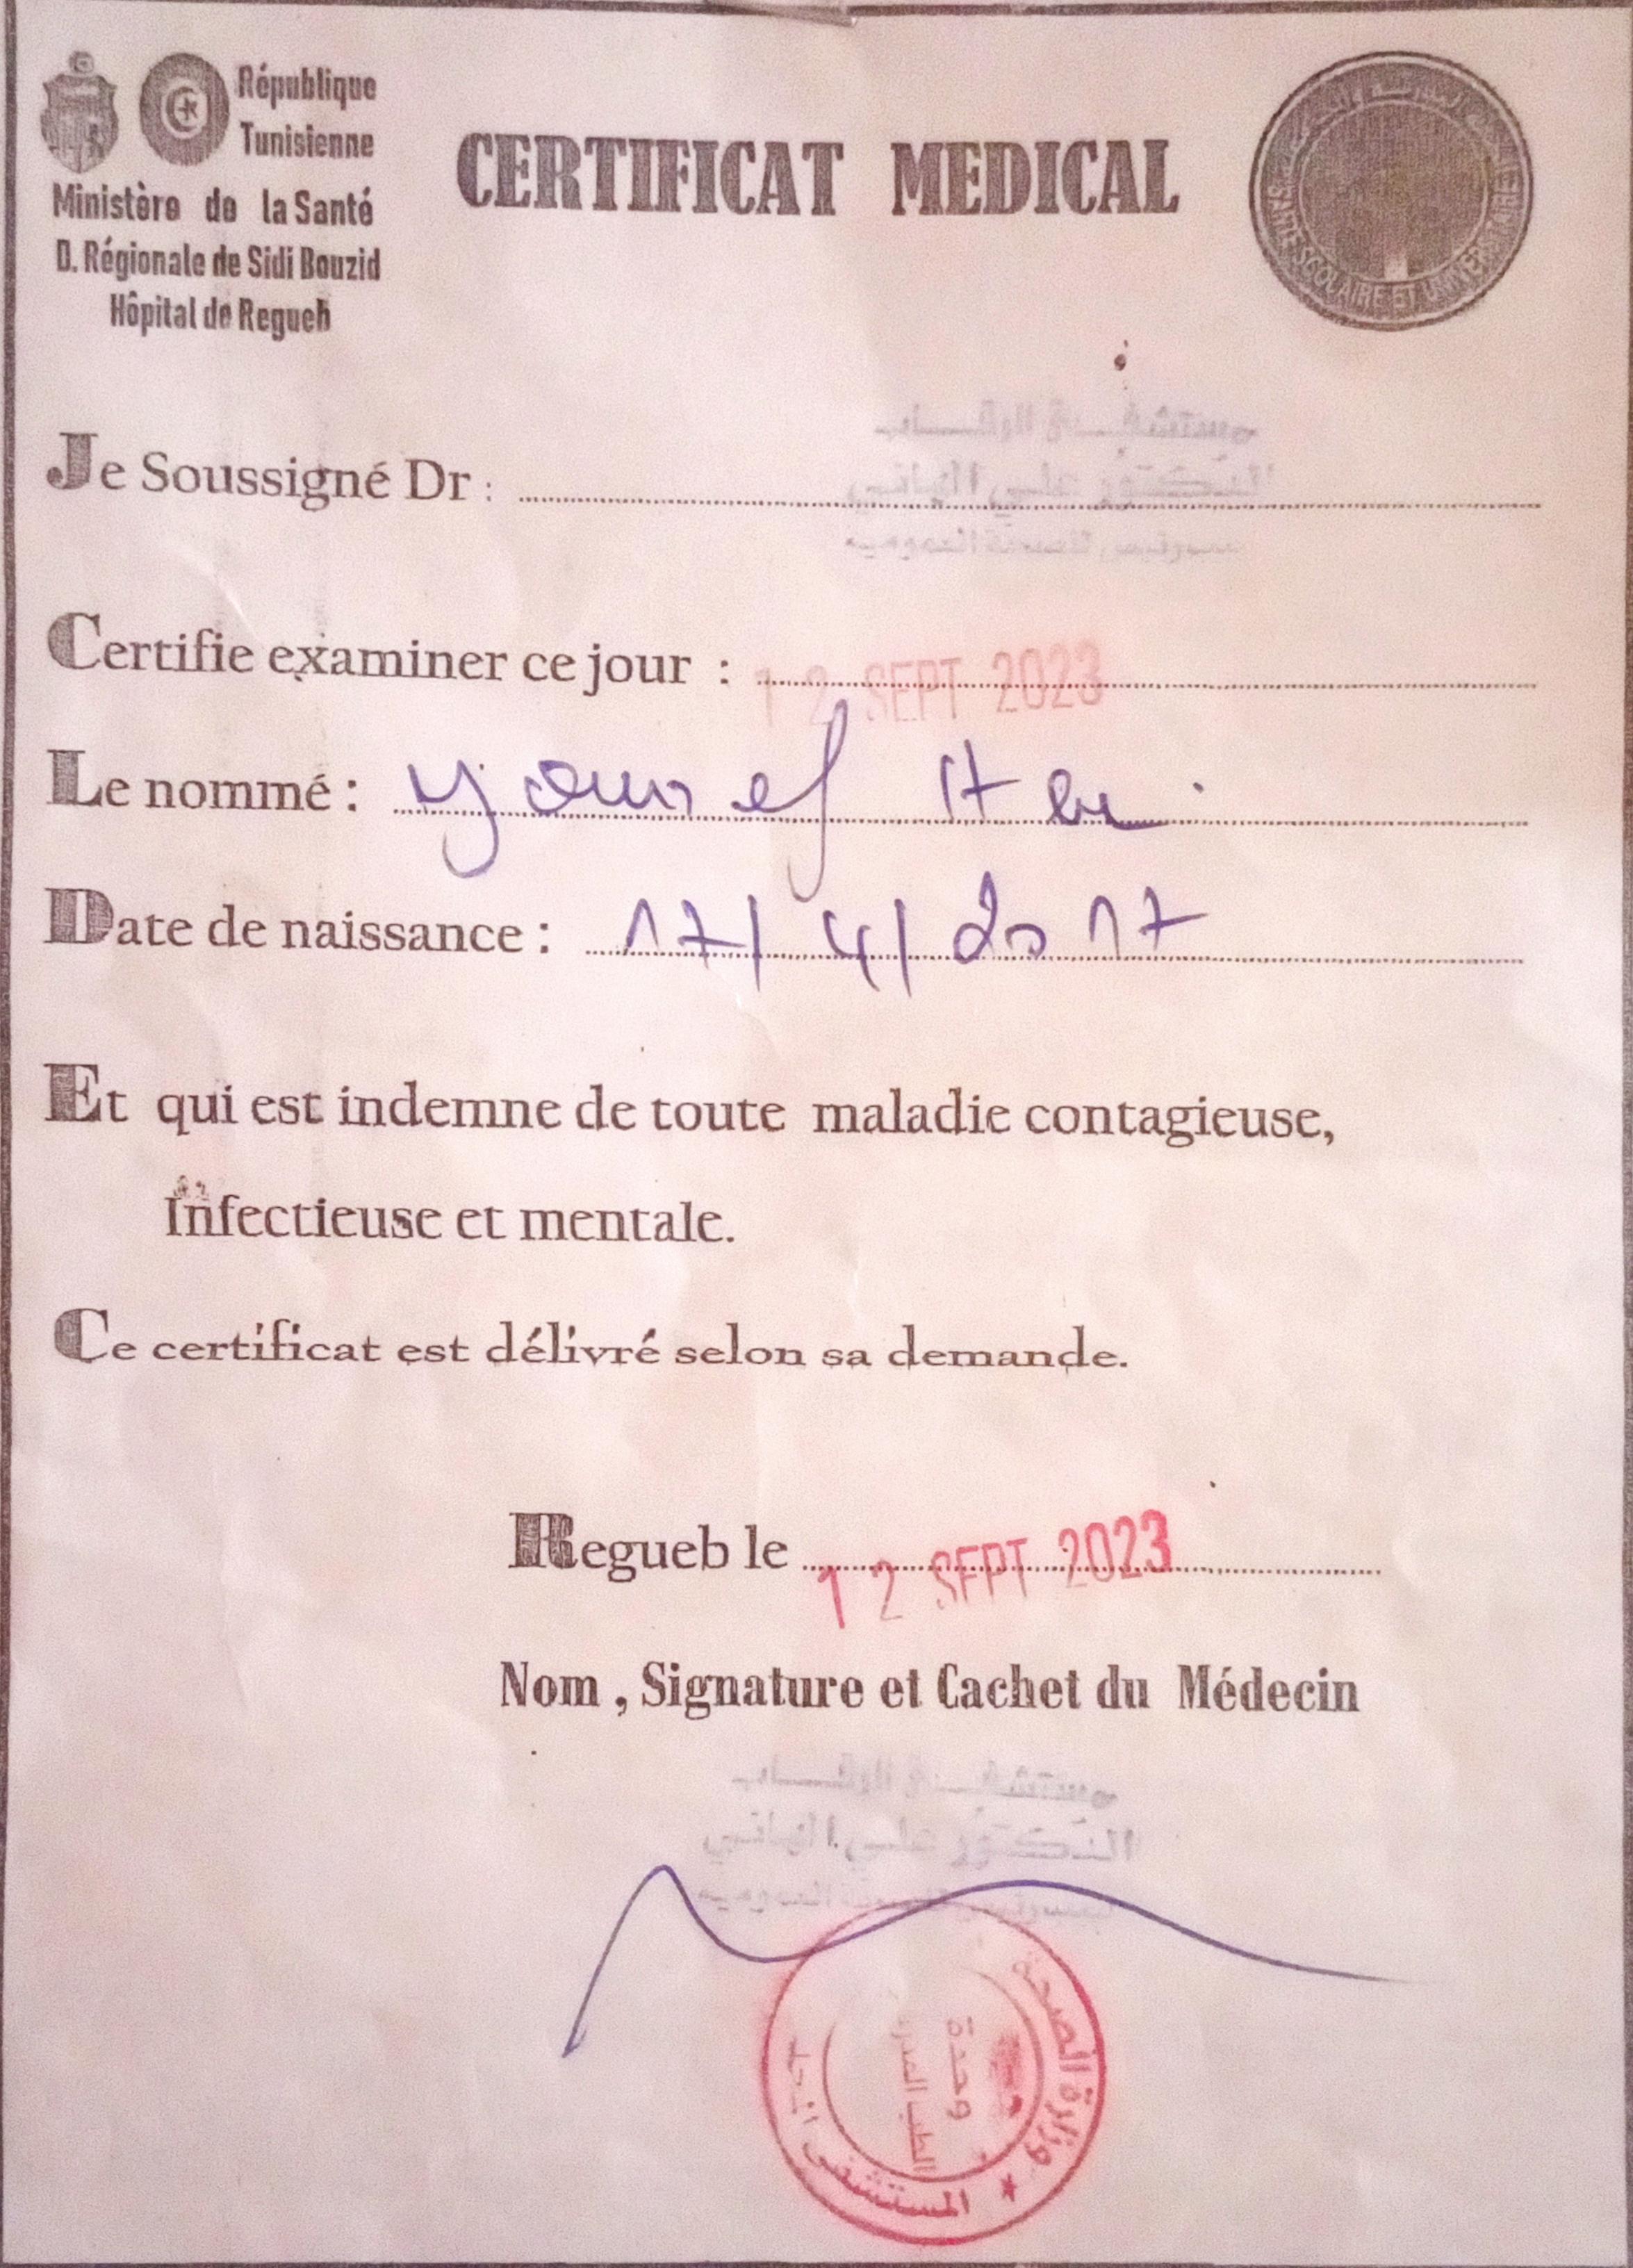 République
Tunisienne
Ministère de la Santé
D. Régionale de Sidi Bouzid
Hôpital de Regueb
CERTIFICAT MEDICAL
SANTE SCOLAIRE ET UNIVERSITAIRE
Je Soussigné Dr :
Certifie examiner ce jour : 12 SEPT 2023
Le nommé : youssef
Date de naissance : 17/4/2017
Et qui est indemne de toute maladie contagieuse,
Infectieuse et mentale.
Ce certificat est délivré selon sa demande.
Regueb le 12 SEPT 2023
Nom , Signature et Cachet du Médecin
وزارة الصحة
وحدة
الطب
المستشفى